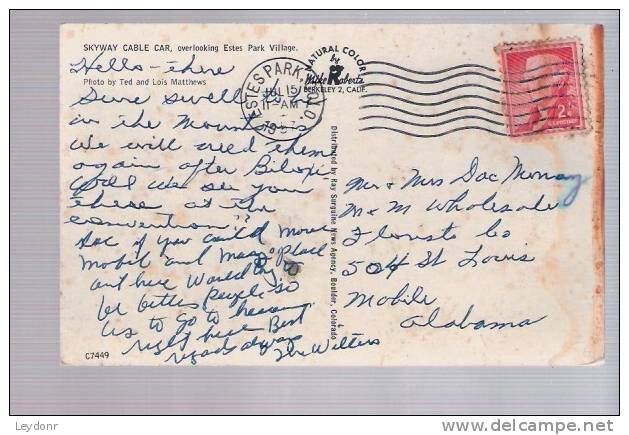 SKYWAY CABLE CAR, overlooking Estes Park Village.
Hello - there
Photo by Ted and Lois Matthews
Sure swell
in the mountains
We will need them
again after Biloxi
Will we see you
there at the
convention??
Doc if you could move
Mobile and Maag Place
out here World
be better people so
us to go to heaven
right here Best
regards always
The Witters
C7449
NATURAL COLOR
by
Mike Roberts
BERKELEY 2, CALIF.
ESTES PARK, COLO.
JUL 15
11-AM
1957
2¢
Distributed by Ray Surguine News Agency, Boulder, Colorado
Mr & Mrs Doc Murray
M & M Wholesale
Florists Co
504 St Louis
Mobile
Alabama
Leydonr
delcampe.net